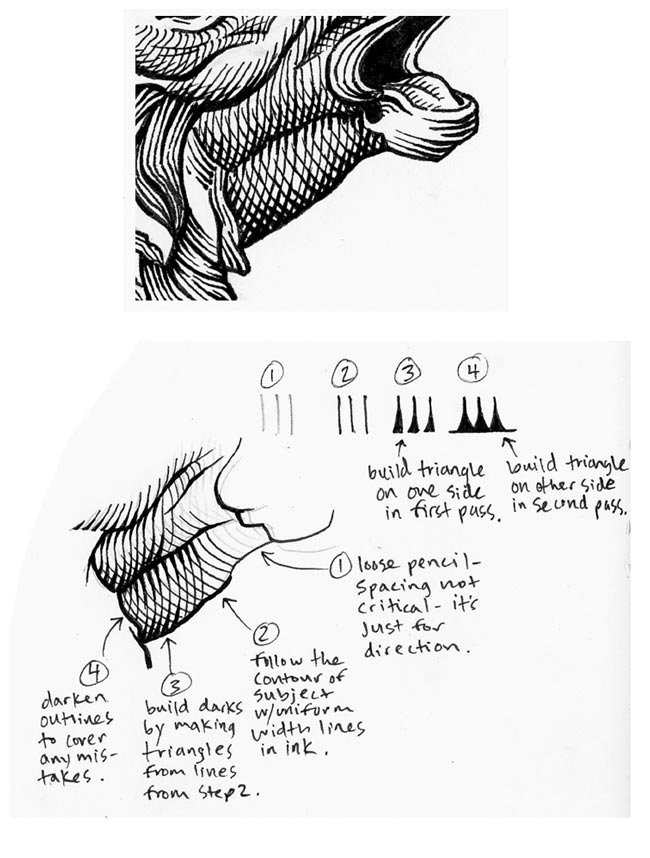 ① ② ③ ④
build triangle
on one side
in first pass.
build triangle
on other side
in second pass.
① loose pencil-
spacing not
critical - it's
just for
direction.
②
follow the
contour of
subject
w/uniform
width lines
in ink.
③
build darks
by making
triangles
from lines
from step 2.
④
darken
outlines
to cover
any mis-
takes.